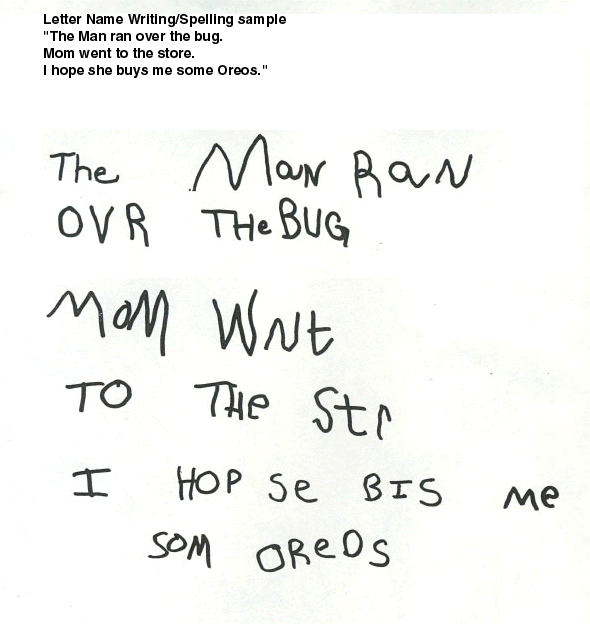 Letter Name Writing/Spelling sample
"The Man ran over the bug.
Mom went to the store.
I hope she buys me some Oreos."
The Man RaN
OVR THe BUG
MoM WNt
TO THe Str
I HOP Se BIS me
SOM OReOS